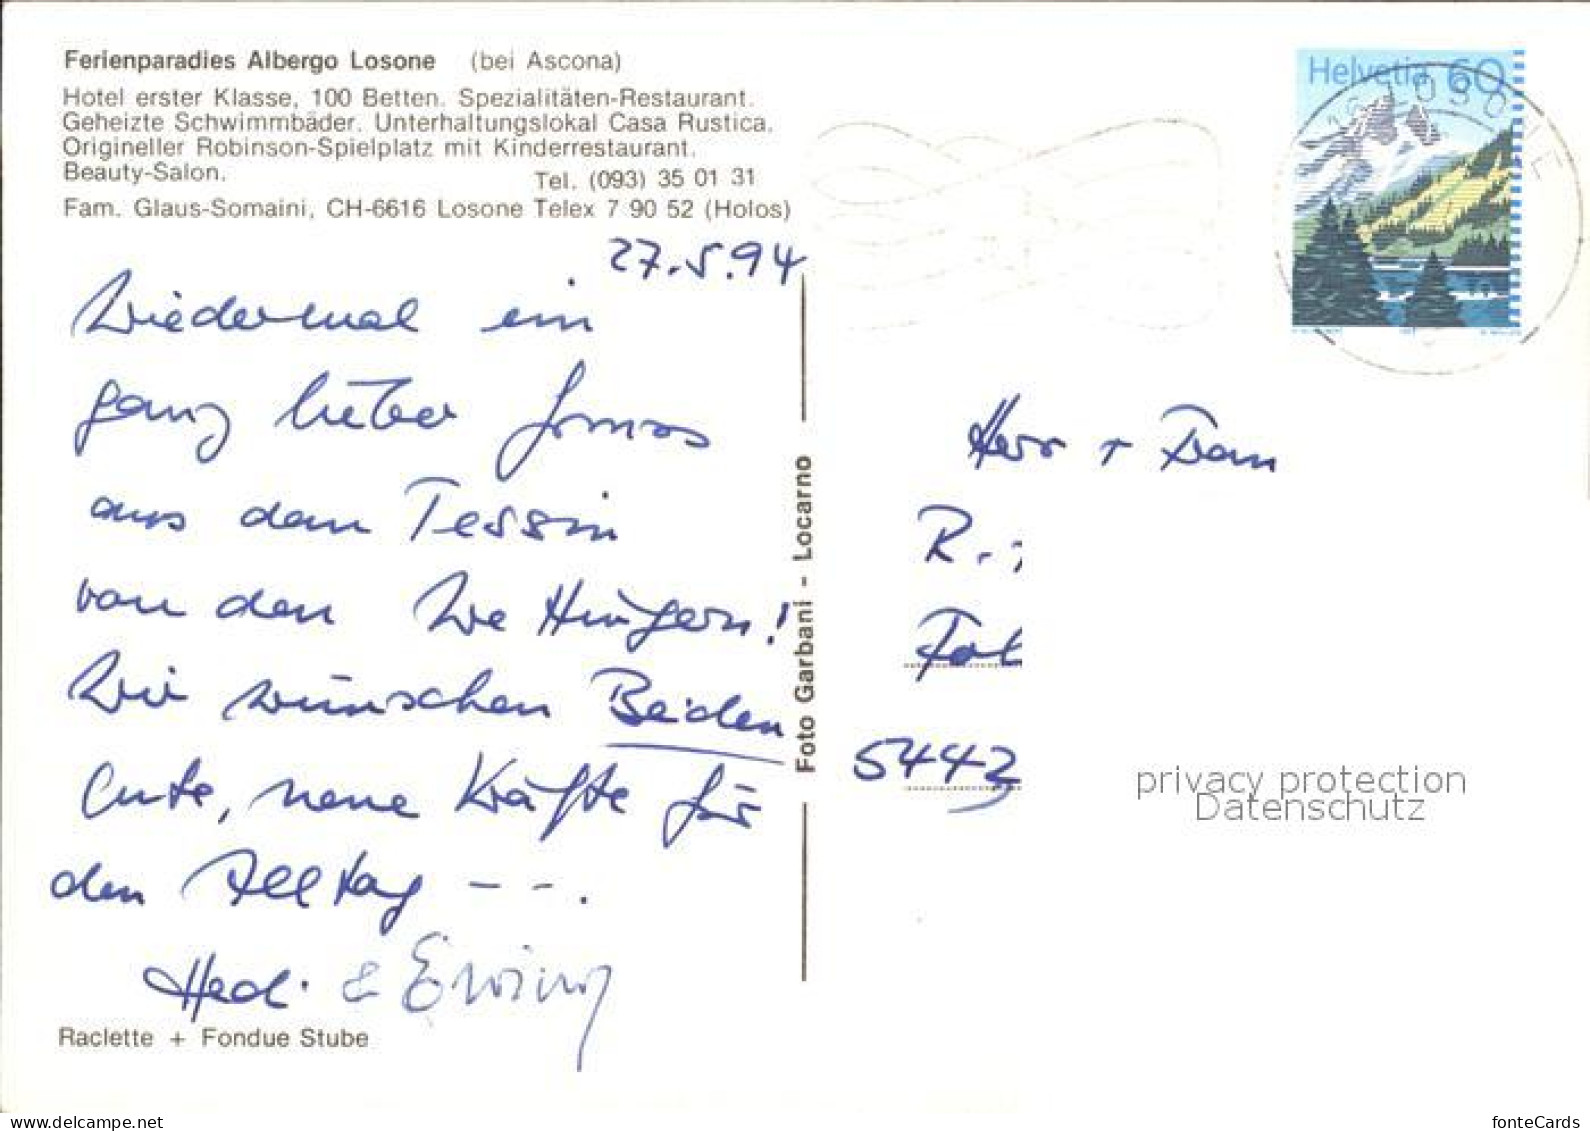 Ferienparadies Albergo Losone (bei Ascona)
Hotel erster Klasse, 100 Betten. Spezialitäten-Restaurant.
Geheizte Schwimmbäder. Unterhaltungslokal Casa Rustica.
Origineller Robinson-Spielplatz mit Kinderrestaurant.
Beauty-Salon. Tel. (093) 35 01 31
Fam. Glaus-Somaini, CH-6616 Losone Telex 7 90 52 (Holos)
27.5.94
Wiedermal ein
ganz lieber
aus dem Tessin
von den
Wir wünschen Beiden
Gute, neue Kräfte für
den Alltag - - .
Hedi & Erwin
Raclette + Fondue Stube
Foto Garbani - Locarno
Helvetia 60
LOSONE
Herr + Frau
R.
5442
privacy protection
Datenschutz
www.delcampe.net
fonteCards